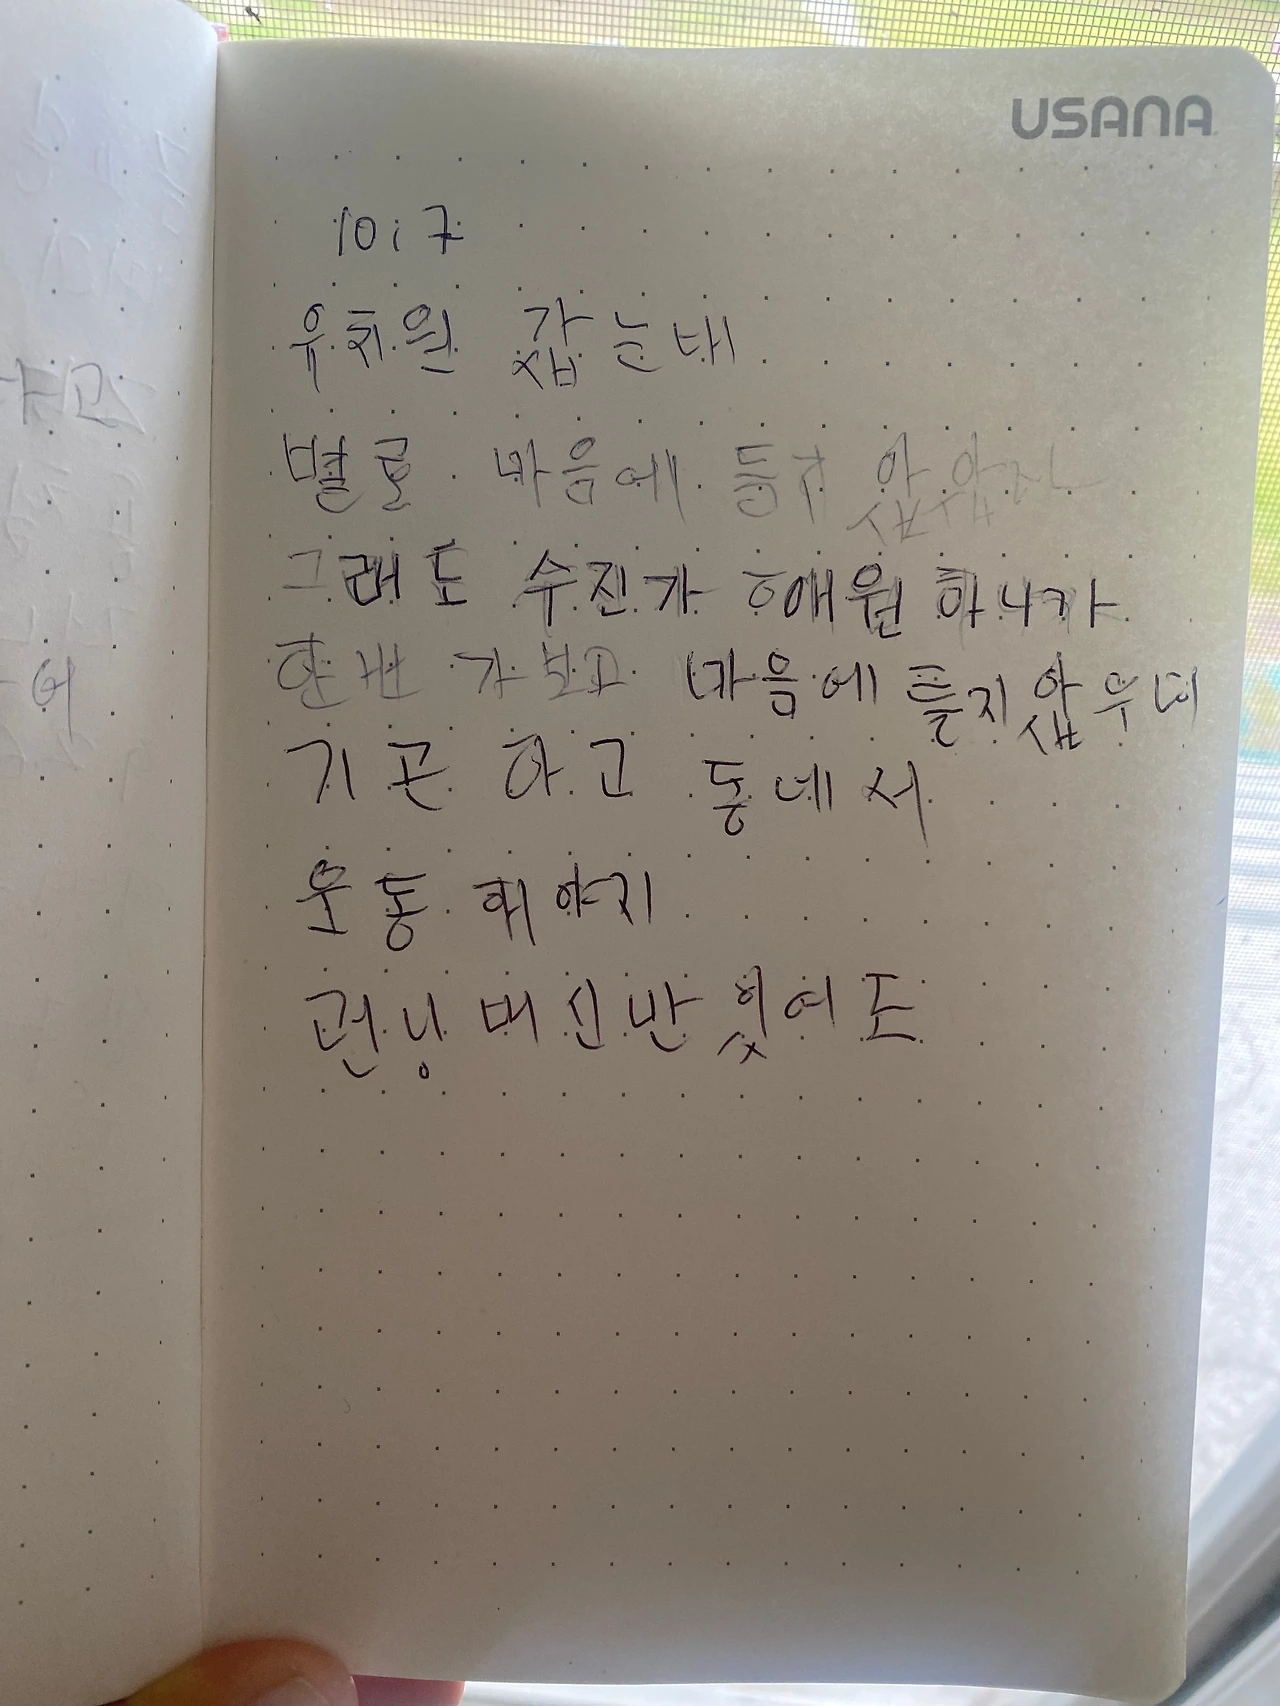 USANA
10:7
유치원 갔는대
별로 마음에 들지
그래도 수진가 해원 하니가
한번 가보고 마음에 들지
기곤 하고 동네서
운동 해야지
런닝 머신반 잇어도